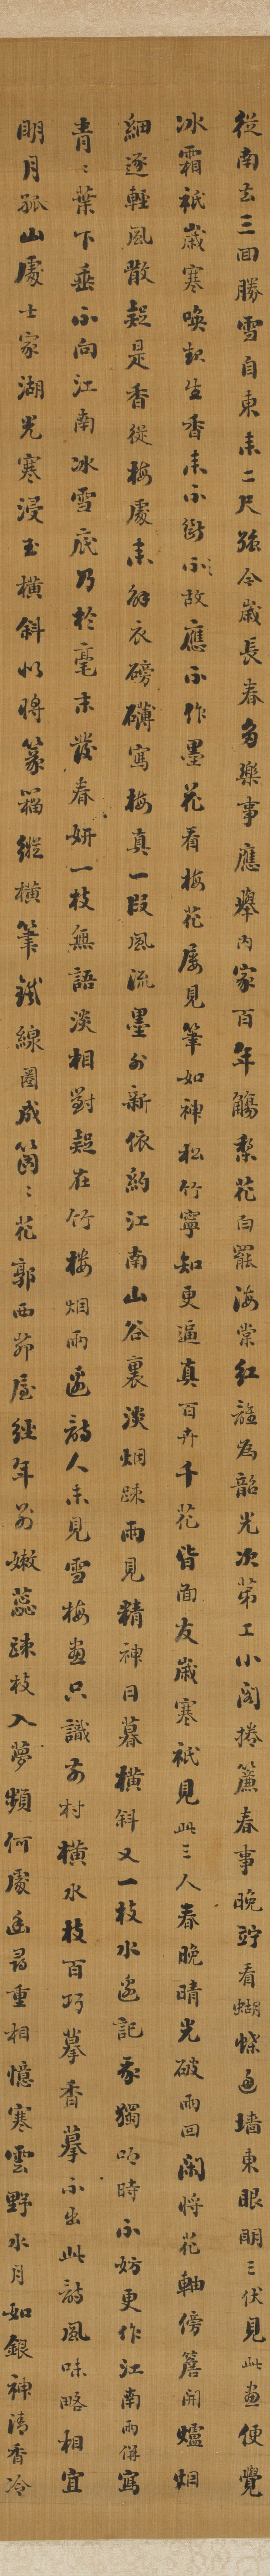 從南去三回勝雪自東来二尺強今歲長春多樂事應舉内家百年觴梨花白罷海棠紅誰為韶光次第工小閣捲簾春事晚竚看蝴蝶過墻東眼明三伏見此畫便覺
冰霜祇歲寒喚起生香来不斷不故應不作墨花看梅花屢見筆如神松竹寧知更逼真百卉千花皆面友歲寒祇見此三人春晚晴光破雨回閑將花軸傍簷開爐烟
細逐輕風散疑是香從梅處来解衣磅礴寫梅真一段風流墨外新依約江南山谷裏淡烟疎雨見精神日暮橫斜又一枝水邊記我獨吟時不妨更作江南雨併寫
青〻葉下垂不向江南冰雪底乃於毫末發春妍一枝無語淡相對疑在竹樓烟雨邊詩人未見雪梅畫只識前村橫水枝百巧摹香摹不出此詩風味略相宜
明月孤山處士家湖光寒浸玉橫斜似將篆籀縱橫筆鐵線圈成箇〻花郭西茆屋經年別嫩蕊疎枝入夢頻何處幽尋重相憶寒雲野水月如銀神清香冷